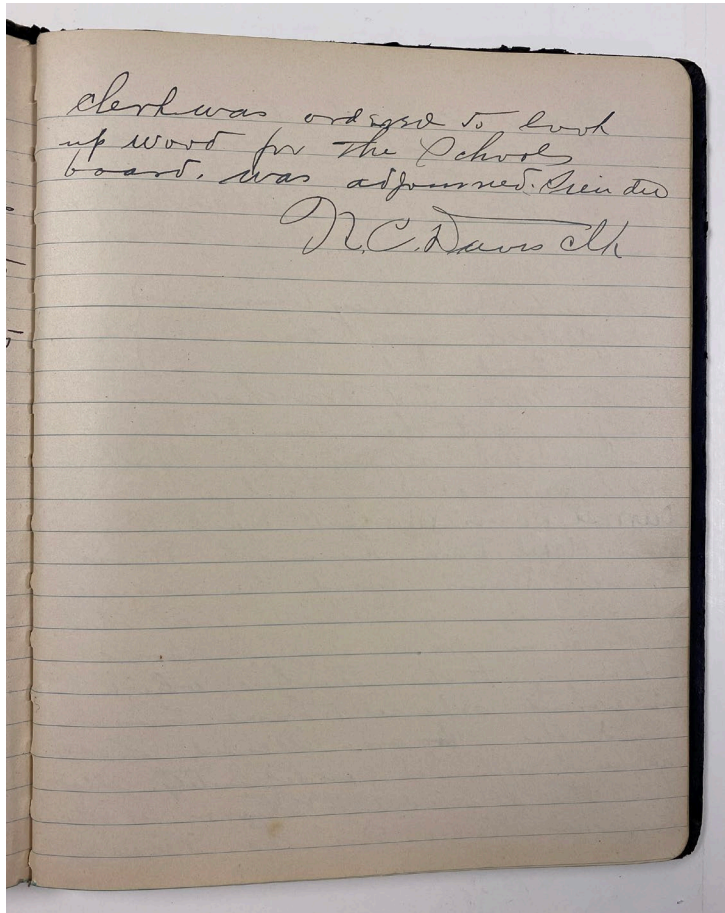 clerk was ordered to look
up wood for the Schools
board. was adjourned. Sein die
N.C. Davis clk